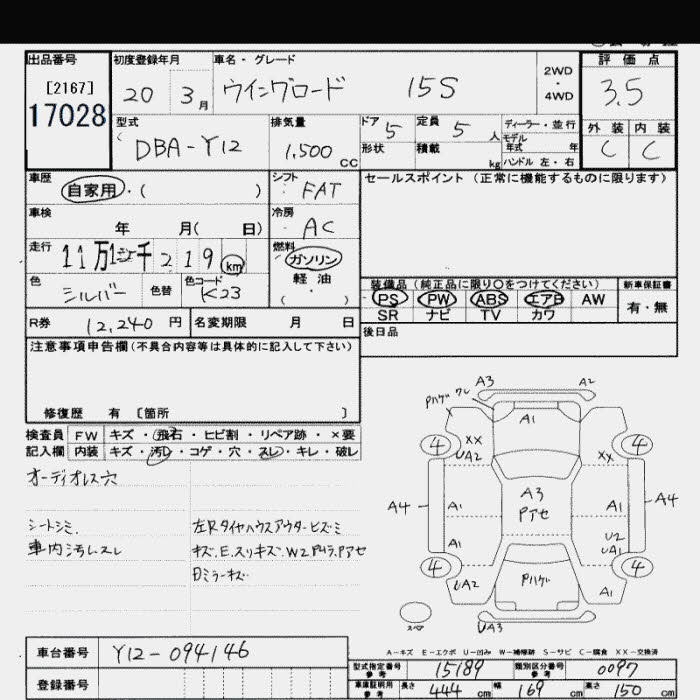 出品番号 初度登録年月 車名・グレード 評価点
[2167] 20 3月 ウイングロード 15S 2WD・4WD 3.5
17028
型式 排気量 ドア 5 定員 5人 ディーラー・並行 外装 内装
DBA-Y12 1,500 CC 形状 積載 kg モデル年式 年 C C
ハンドル 左・右
車歴 シフト セールスポイント (正常に機能するものに限ります)
自家用・( ) FAT
車検 冷房
年 月( 日) AC
走行 燃料
11万 千219 km ガソリン
色 色替 色コード 軽油 装備品 (純正品に限り〇をつけてください) 新車保証書
シルバー K23 ( ・ ) PS PW ABS エアB AW 有・無
R券 12,240円 名変期限 月 日 SR ナビ TV カワ
後日品
注意事項申告欄(不具合内容等は具体的に記入して下さい)
修復歴 有 [箇所 ]
検査員 FW キズ・飛石・ヒビ割・リペア跡・×要
記入欄 内装 キズ・汚レ・コゲ・穴・スレ・キレ・破レ
オーディオレス穴
シートシミ. 左Rタイヤハウスアウターヒズミ
車内汚レスレ キズ.E.スリキズ.W2.Pムラ.Pアセ
日ミラーキズ
A3 A2
Pハゲ ワレ
A1
4 4
XX
UA2 XX
A3
Pアセ
A4 A1 A1 A4
A1 U2
UA1
4 4
Pハゲ
UA2 A1
スペア UA3
A-キズ E-エクボ U-凹み W-補修跡 S-サビ C-腐食 XX-交換済
車台番号 Y12-094146
型式指定番号 参考 15189 類別区分番号 参考 0097
登録番号
車庫証明用 参考 長さ 444 cm 幅 169 cm 高さ 150 cm